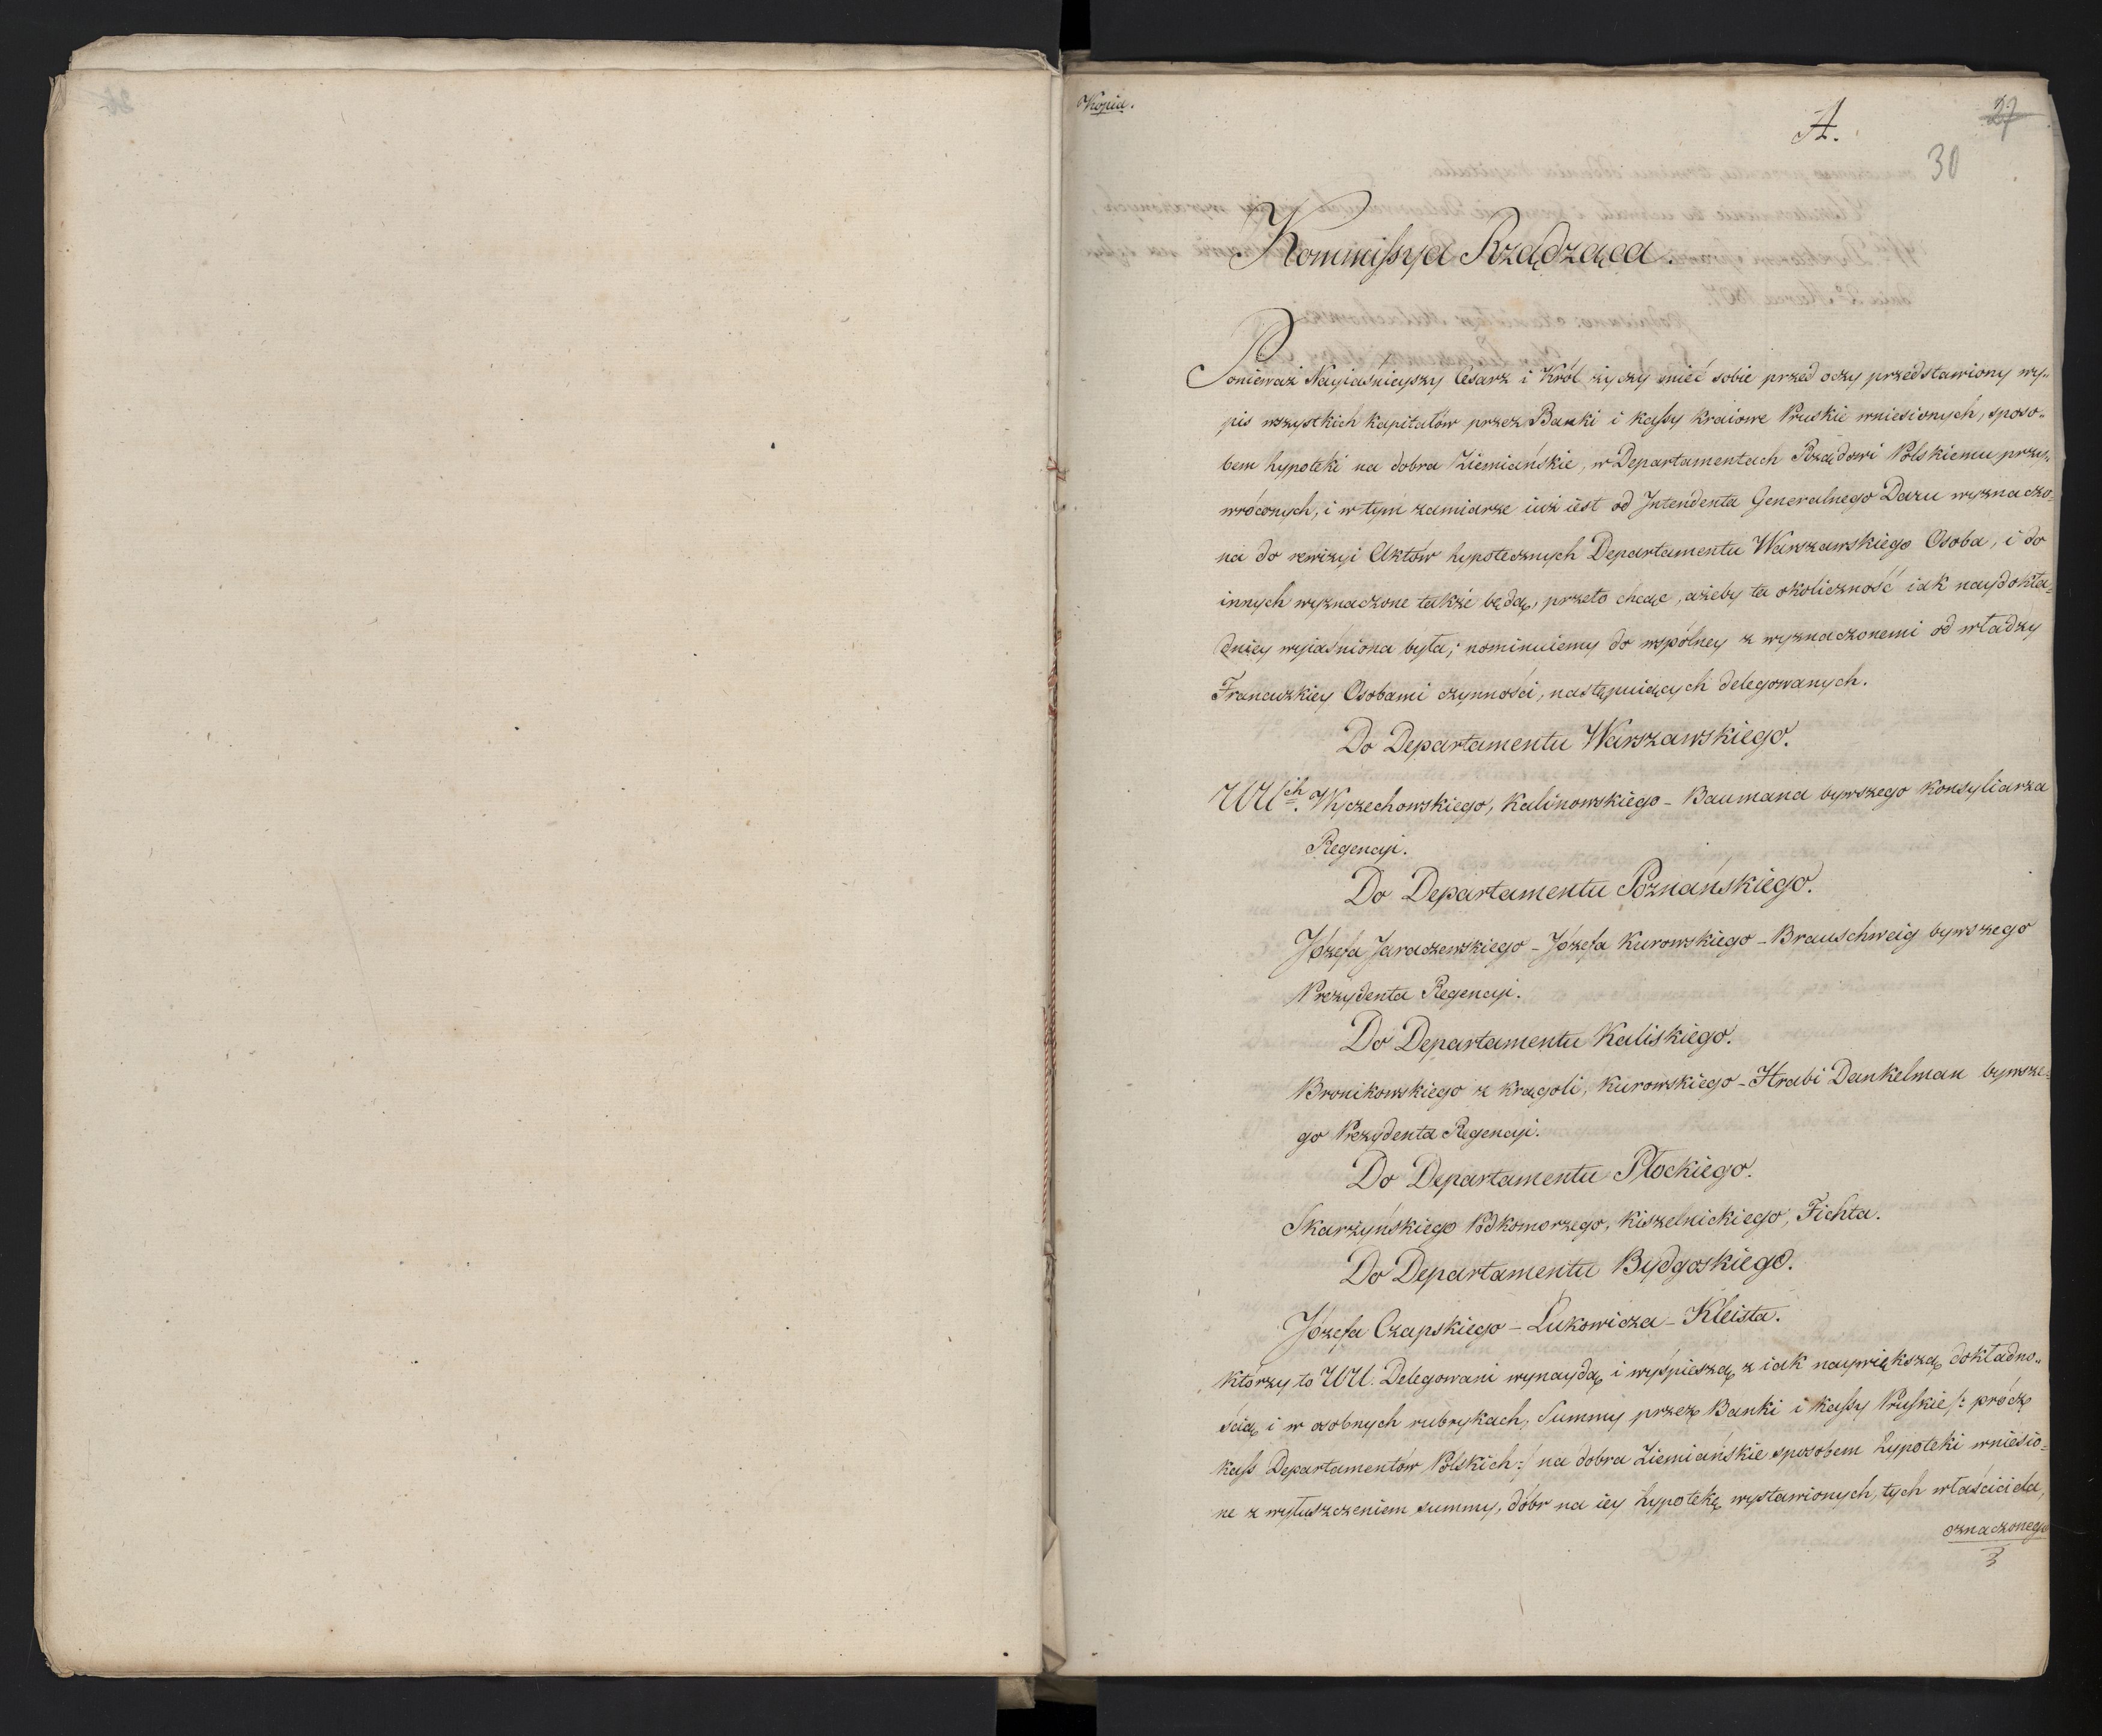 Kopia.
A.
27
30
Kommissya Rządząca.
Ponieważ Nayiaśnieyszy Cesarz i Król życzy mieć sobie przed oczy przedstawiony wy„
pis wszystkich kapitałów przez Banki i kassy kraiowe Pruskie wniesionych, sposo„
bem hypoteki na dobra Ziemiańskie, w Departamentach Rządowi Polskiemu przy„
wróconych, i w tym zamiarze iuż iest od Jntendenta Generalnego Daru wyznaczo=
na do rewizyi Aktów hypotecznych Departamentu Warszawskiego Osoba, i do
innych wyznaczone także będą, przeto chcąc, ażeby ta okoliczność iak naydokła=
dniey wyiaśniona była; nominuiemy do wspólney z wyznaczonemi od władzy
Francuzkiey Osobami czynności, następuiących delegowanych.
Do Departamentu Warszawskiego.
WU^ch. Wyczechowskiego, Kalinowskiego – Baumana bywszego Konsyliarza
Regencyi.
Do Departamentu Poznańskiego.
Józefa Jaraczewskiego – Józefa Kurowskiego – Brauschweig bywszego
Prezydenta Regencyi.
Do Departamentu Kaliskiego.
Bronikowskiego z Krągoli, Kurowskiego – Hrabi Dankelman bywsze=
go Prezydenta Regencyi.
Do Departamentu Płockiego.
Skarżyńskiego Podkomorzego, Kiszelnickiego, Fichta.
Do Departamentu Bydgoskiego.
Józefa Czapskiego – Lukowicza – Kleista.
Którzy to WU. Delegowani wynaydą i wyśpieszą z iak naywiększą dokładno„
ścią i w osobnych rubrykach, Summy przez Banki i kassy Pruskie /: prócz
kass Departamentów Polskich :/ na dobra Ziemiańskie sposobem hypoteki wniesio=
ne z wyłuszczeniem summy, dóbr na iey hypotekę wystawionych, tych właściciela,
oznaczonego
3